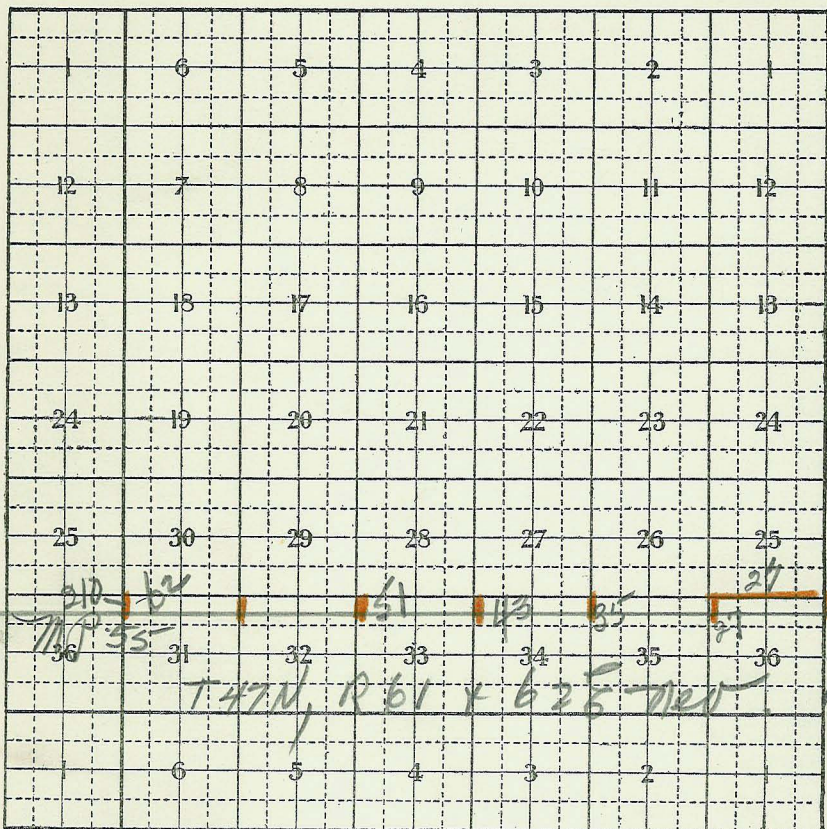 1 6 5 4 3 2 1
12 7 8 9 10 11 12
13 18 17 16 15 14 13
24 19 20 21 22 23 24
25 30 29 28 27 26 25
27
210 62 51 43 35 27
MP 55
36 31 32 33 34 35 36
T47N, R61 & 62E Nev.
1 6 5 4 3 2 1